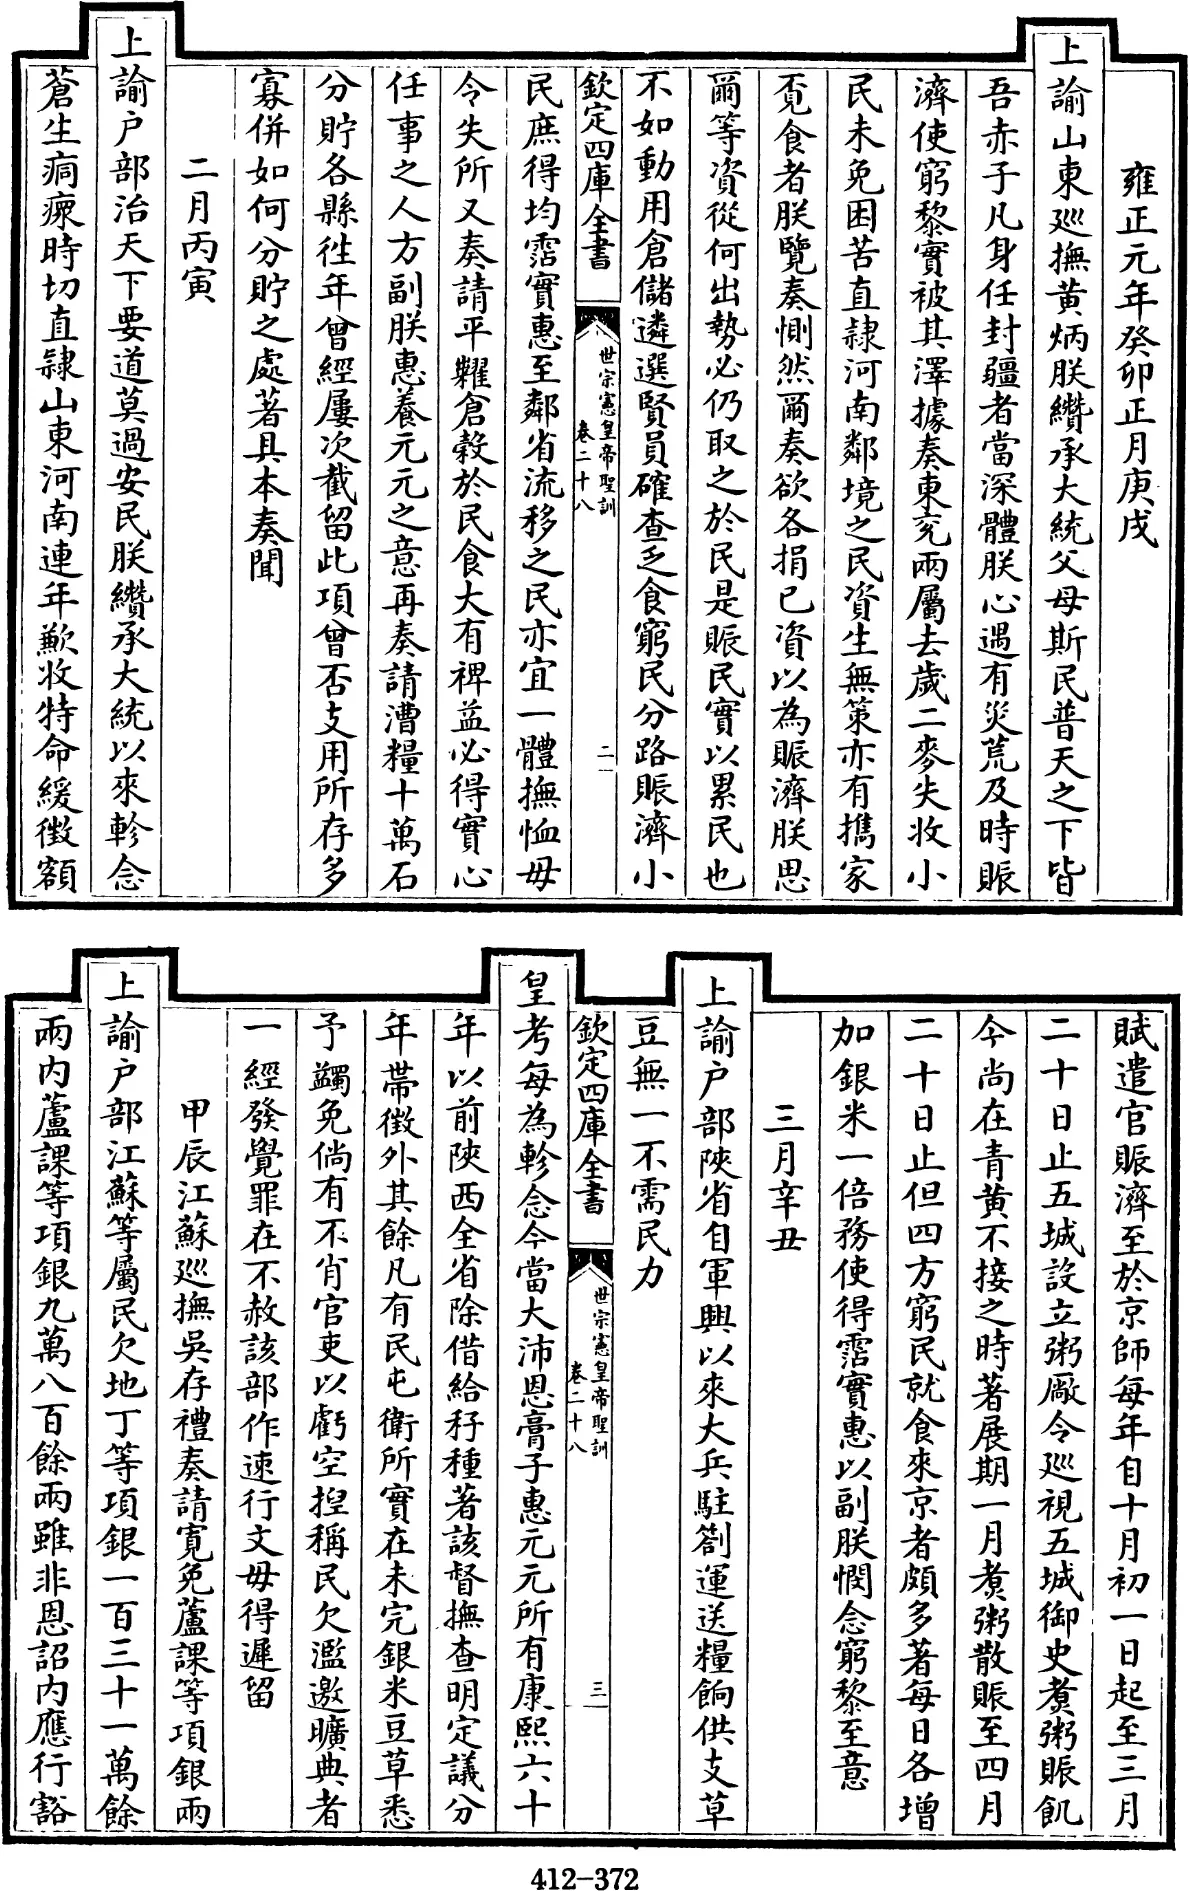 雍正元年癸卯正月庚戌
上諭山東巡撫黃炳朕纘承大統父母斯民普天之下皆
吾赤子凡身任封疆者當深體朕心遇有災荒及時賑
濟使窮黎實被其澤據奏東兖兩屬去歲二麥失收小
民未免困苦直隸河南鄰境之民資生無策亦有攜家
覓食者朕覽奏惻然爾奏欲各捐已資以為賑濟朕思
爾等資從何出勢必仍取之於民是賑民實以累民也
不如動用倉儲遴選賢員確查乏食窮民分路賑濟小
欽定四庫全書
世宗憲皇帝聖訓
卷二十八
二
民庶得均霑實惠至鄰省流移之民亦宜一體撫恤毋
令失所又奏請平糶倉穀於民食大有裨益必得實心
任事之人方副朕惠養元元之意再奏請漕糧十萬石
分貯各縣徃年曾經屢次截留此項曾否支用所存多
寡併如何分貯之處著具本奏聞
二月丙寅
上諭户部治天下要道莫過安民朕纘承大統以來軫念
蒼生痌瘝時切直隸山東河南連年歉收特命緩徵額
賦遣官賑濟至於京師每年自十月初一日起至三月
二十日止五城設立粥廠令巡視五城御史煑粥賑飢
今尚在青黃不接之時著展期一月煑粥散賑至四月
二十日止但四方窮民就食來京者頗多著每日各增
加銀米一倍務使得霑實惠以副朕憫念窮黎至意
三月辛丑
上諭户部陝省自軍興以來大兵駐劄運送糧餉供支草
豆無一不需民力
欽定四庫全書
世宗憲皇帝聖訓
卷二十八
三
皇考每為軫念今當大沛恩膏子惠元元所有康熙六十
年以前陝西全省除借給籽種著該督撫查明定議分
年帶徵外其餘凡有民屯衛所實在未完銀米豆草悉
予蠲免倘有不肖官吏以虧空揑稱民欠濫邀曠典者
一經發覺罪在不赦該部作速行文毋得遲留
甲辰江蘇巡撫吳存禮奏請寬免蘆課等項銀兩
上諭户部江蘇等屬民欠地丁等項銀一百三十一萬餘
兩內蘆課等項銀九萬八百餘兩雖非恩詔內應行豁
412-372